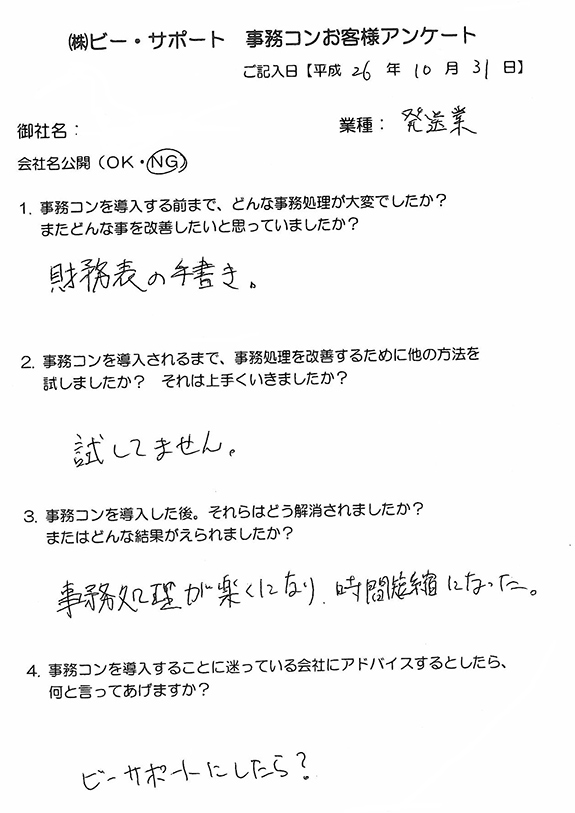 ㈱ビー・サポート　事務コンお客様アンケート
ご記入日【平成 26 年 10 月 31 日】
御社名：
業種： 発送業
会社名公開（OK・NG）
1. 事務コンを導入する前まで、どんな事務処理が大変でしたか？
またどんな事を改善したいと思っていましたか？
財務表の手書き。
2. 事務コンを導入されるまで、事務処理を改善するために他の方法を
試しましたか？　それは上手くいきましたか？
試してません。
3. 事務コンを導入した後。それらはどう解消されましたか？
またはどんな結果がえられましたか？
事務処理が楽くになり、時間短縮になった。
4. 事務コンを導入することに迷っている会社にアドバイスするとしたら、
何と言ってあげますか？
ビーサポートにしたら？